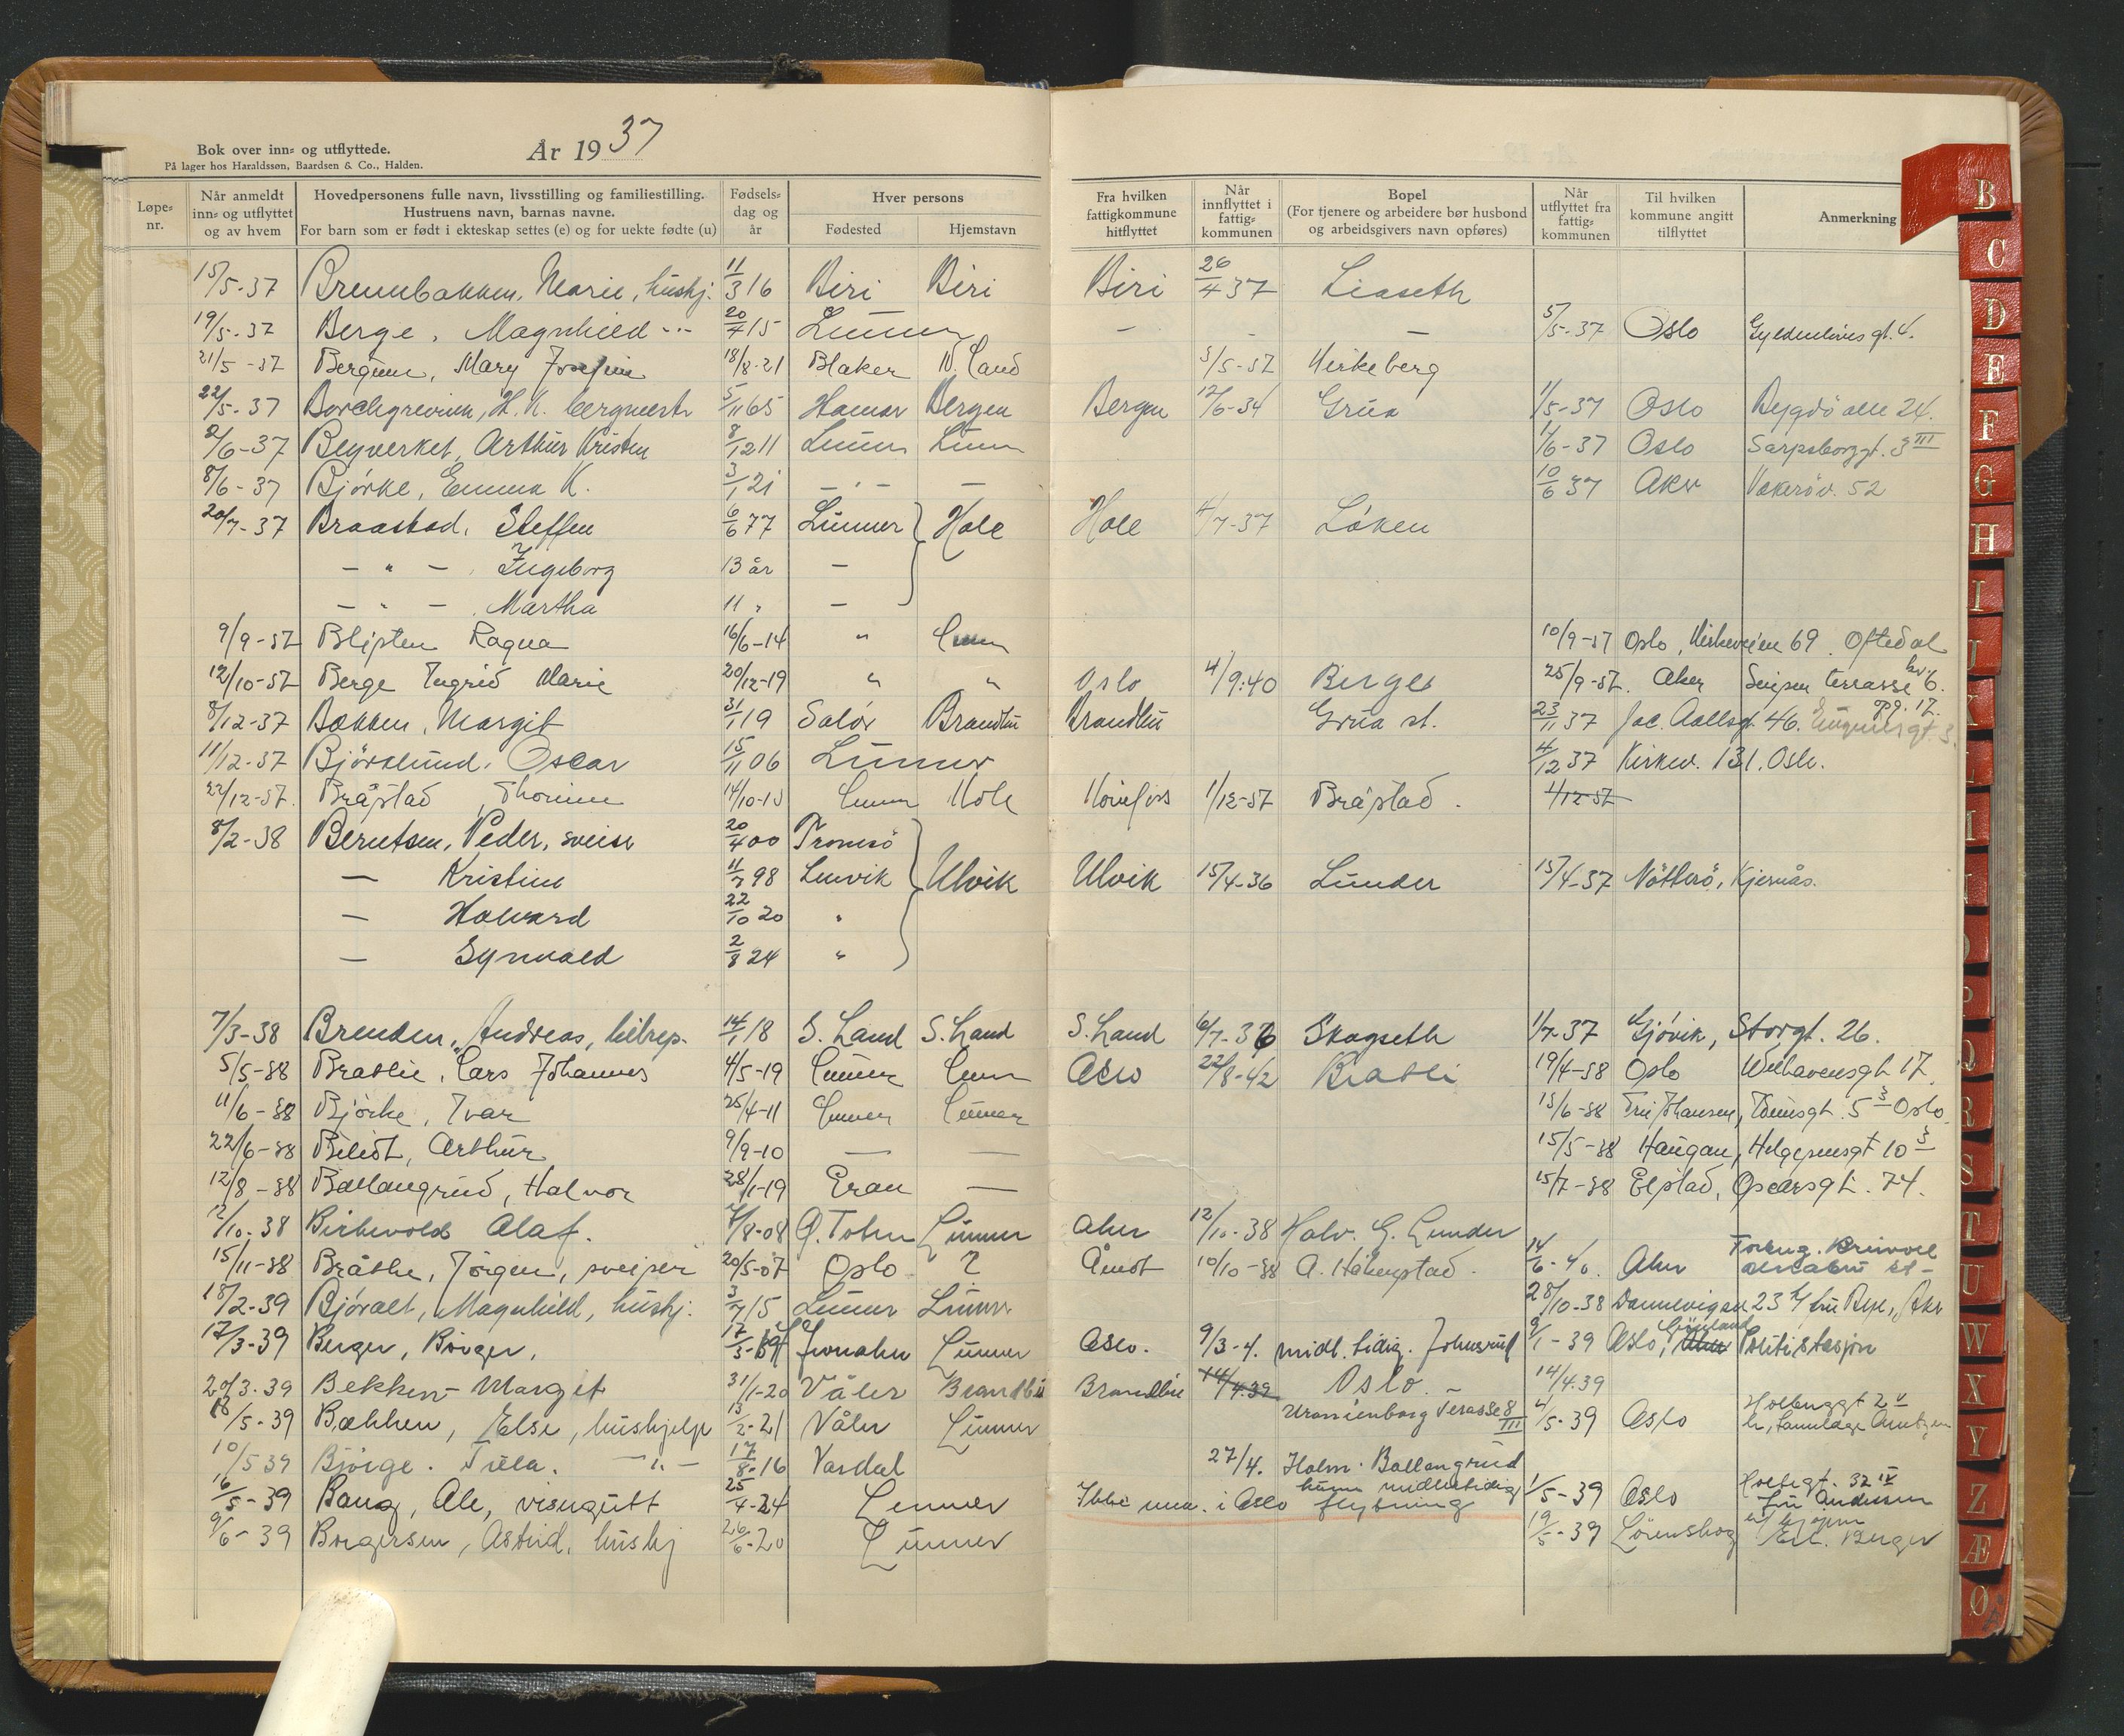 Bok over inn= og utflyttede.
På lager hos Haraldssøn, Baardsen & Co., Halden.
År 1937
Løpe=nr.
Når anmeldt inn= og utflyttet og av hvem
Hovedpersonens fulle navn, livsstilling og familiestilling. Hustruens navn, barnas navne. For barn som er født i ekteskap settes (e) og for uekte fødte (u)
Fødsels=dag og år
Hver persons
Fødested
Hjemstavn
Fra hvilken fattigkommune hitflyttet
Når innflyttet i fattig=kommunen
Bopel (For tjenere og arbeidere bør husbond og arbeidsgivers navn opføres)
Når utflyttet fra fattig=kommunen
Til hvilken kommune angitt tilflyttet
Anmerkning
15/5-37 Brennbakken, Marie, hushj. 11/3 16 Biri Biri Biri 26/4 37 Liaseth
19/5-37 Berge, Magnhild -"- 20/4 15 Lunner - - - 5/5-37 Oslo
21/5-37 Mary Josefine 18/8-21 Blaker N. Land 3/5-37 Kirkeberg
22/5-37 Borchgrevink, H. K. bergmestr 5/11 65 Hamar Bergen Bergen 12/6-34 Grua 1/5-37 Oslo Bygdö alle 24.
2/6-37 Arthur Kristen 8/12 11 Lunn Lunn 1/6-37 Oslo Sarpsborggt. 3 III
8/6-37 Bjørke, Emma K. 3/1 21 - " - - 10/6 37 Aker 52
20/7-37 Braastad, Steffen 6/6 77 Lunner Hole Hole 4/7-37 Løken
- " - Ingeborg 13 år -
- " - Martha 11 " -
9/9-37 Ragna 16/6-14 " Lunn 10/9-37 Oslo, Kirkeveien 69. Oftedal
12/10-37 Berge Ingrid Marie 20/12-19 " " Oslo 4/9:40 Berger 25/9-37. Aker terrasse 6.
opg. 17.
8/12-37 Bakken, Margit 31/1 19 Brandbu Brandbu Grua st. 23/11 37 Jac. Aallsgt. 46.
11/12-37 Bjørklund, Oscar 15/11 06 Lunner 4/12 37 Kirkev. 131. Oslo.
22/12-37. Bråstad, 14/10-13 Lunner Hole Hönefoss 1/12-37 Bråstad. 1/12-37
8/2-38 Berntsen, Peder, sveiser 20/4 00 Tromsö
- Kristine 11/7 98 Lenvik Ulvik Ulvik 15/4-36 Lunder 15/4-37 Nötterö, Kjernås.
- Halvard 22/10 20 "
- Synvald 2/8 24 "
7/3-38 Brenden, Andreas, bilrep. 14/1 18 S. Land S. Land S. Land 6/7-36 Skogseth 1/7-37 Gjövik, Storgt. 26.
5/5-38 Bratlie, Lars Johannes 4/5-19 Lunner Lunn Oslo 22/8-42 Bratli 19/4-38 Oslo Welhavensgt 17.
11/6-38 Björke, Ivar 25/4-11 Lunner Lunner 15/6-38 Fru Johansen, 5 3 Oslo.
22/6-38 Arthur 9/9-10 - - 15/5-38 Haugan, Helgesensgt 10 3
12/8-38 Ballangrud, Halvor 28/1-19 Gran - 15/7-38 Elstad, Oscarsgt. 74.
12/10-38 Birkevold Olaf. 7/8-08 Ö. Toten Lunner Aker 12/10-38 Halv. G. Lunder
15/11-38 Bråthe, Jörgen, sveiser 20/5-07 Oslo ? Åmot 10/10-38 A. Håkenstad. 14/6-40. Aker
18/2-39 Magnhild, hushj. 3/7 15 Lunner Lunner 28/10-38 23
17/3-39 Berger, Birger, 17/3- Lunner Oslo. 9/3-4. midl. tidig. Johnsrud 9/1-39 Oslo, Grönland Politistasjon
20/3-39 Bekken Margit 31/1-20 Våler Brandbu Brandbu 14/4.39 Oslo. - 14/4.39
18/5-39 Bækken, Else, hushjelp 13/2-21 Våler Lunner Uranienborg Terasse 8 III 4/5-39 Oslo
10/5 39 Bjørge. -"- 17/8-16 Vardal 27/4. Holm. Ballangrud
16/5-39 Bang, Ole, visergutt 25/4-24 Lunner Ikke i Oslo kunn midlertidig flytning 1/5-39 Oslo Holtegt. 32 IV
fru Andersen
9/6-39 Borgersen, Astrid, hushj 26/6-20 Lunner 19/5-39 Lörenskog Berger
B
C
D
E
F
G
H
I
J
K
L
M
O
P
Q
R
S
T
U
W
X
Y
Z
Æ
Ø